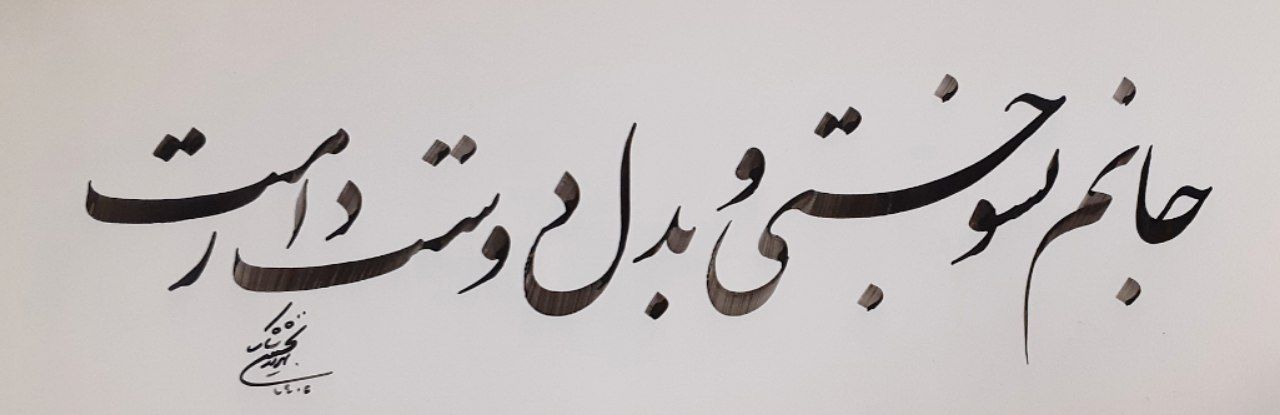 جانم بسوختی و بدل دوست دارمت